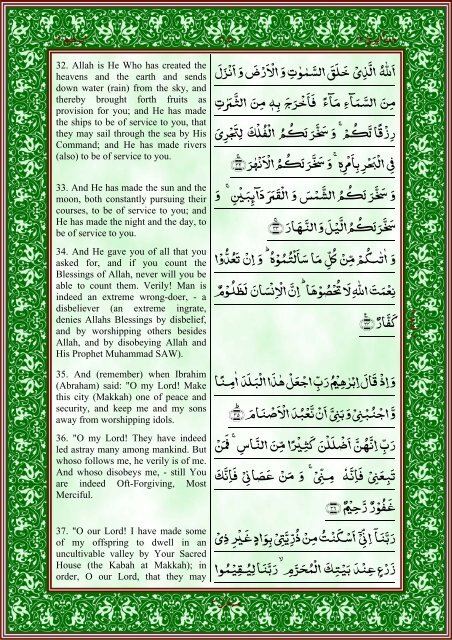 32. Allah is He Who has created the
heavens and the earth and sends
down water (rain) from the sky, and
thereby brought forth fruits as
provision for you; and He has made
the ships to be of service to you, that
they may sail through the sea by His
Command; and He has made rivers
(also) to be of service to you.
33. And He has made the sun and the
moon, both constantly pursuing their
courses, to be of service to you; and
He has made the night and the day, to
be of service to you.
34. And He gave you of all that you
asked for, and if you count the
Blessings of Allah, never will you be
able to count them. Verily! Man is
indeed an extreme wrong-doer, - a
disbeliever (an extreme ingrate,
denies Allahs Blessings by disbelief,
and by worshipping others besides
Allah, and by disobeying Allah and
His Prophet Muhammad SAW).
35. And (remember) when Ibrahim
(Abraham) said: "O my Lord! Make
this city (Makkah) one of peace and
security, and keep me and my sons
away from worshipping idols.
36. "O my Lord! They have indeed
led astray many among mankind. But
whoso follows me, he verily is of me.
And whoso disobeys me, - still You
are indeed Oft-Forgiving, Most
Merciful.
37. "O our Lord! I have made some
of my offspring to dwell in an
uncultivable valley by Your Sacred
House (the Kabah at Makkah); in
order, O our Lord, that they may
اَللّٰهُ الَّذِیْ خَلَقَ السَّمٰوٰتِ وَ الْاَرْضَ وَ اَنْزَلَ
مِنَ السَّمَآءِ مَآءً فَاَخْرَجَ بِهٖ مِنَ الثَّمَرٰتِ
رِزْقًا لَّكُمْ ۚ وَ سَخَّرَ لَكُمُ الْفُلْكَ لِتَجْرِیَ
فِی الْبَحْرِ بِاَمْرِهٖ ۚ وَ سَخَّرَ لَكُمُ الْاَنْهٰرَ ﴿۳۲﴾
وَ سَخَّرَ لَكُمُ الشَّمْسَ وَ الْقَمَرَ دَآىِٕبَیْنِ ۚ وَ
سَخَّرَ لَكُمُ الَّیْلَ وَ النَّهَارَ ﴿۳۳﴾
وَ اٰتٰىكُمْ مِّنْ كُلِّ مَا سَاَلْتُمُوْهُ ؕ وَ اِنْ تَعُدُّوْا
نِعْمَتَ اللّٰهِ لَا تُحْصُوْهَا ؕ اِنَّ الْاِنْسَانَ لَظَلُوْمٌ
كَفَّارٌ ﴿۳۴﴾
وَ اِذْ قَالَ اِبْرٰهِیْمُ رَبِّ اجْعَلْ هٰذَا الْبَلَدَ اٰمِنًا
وَّ اجْنُبْنِیْ وَ بَنِیَّ اَنْ نَّعْبُدَ الْاَصْنَامَ ﴿۳۵﴾
رَبِّ اِنَّهُنَّ اَضْلَلْنَ كَثِیْرًا مِّنَ النَّاسِ ۚ فَمَنْ
تَبِعَنِیْ فَاِنَّهٗ مِنِّیْ ۚ وَ مَنْ عَصَانِیْ فَاِنَّكَ
غَفُوْرٌ رَّحِیْمٌ ﴿۳۶﴾
رَبَّنَاۤ اِنِّیْۤ اَسْكَنْتُ مِنْ ذُرِّیَّتِیْ بِوَادٍ غَیْرِ ذِیْ
زَرْعٍ عِنْدَ بَیْتِكَ الْمُحَرَّمِ ۙ رَبَّنَا لِیُقِیْمُوا